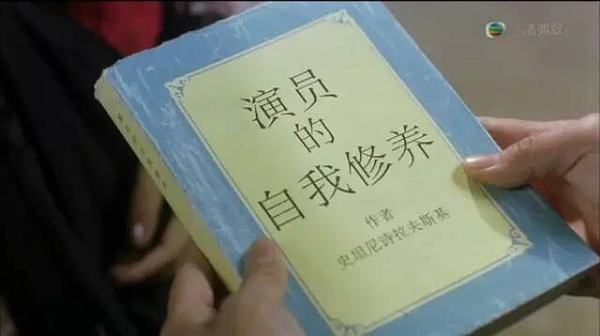 演员
的
自我修养
作者
史坦尼诗拉夫斯基